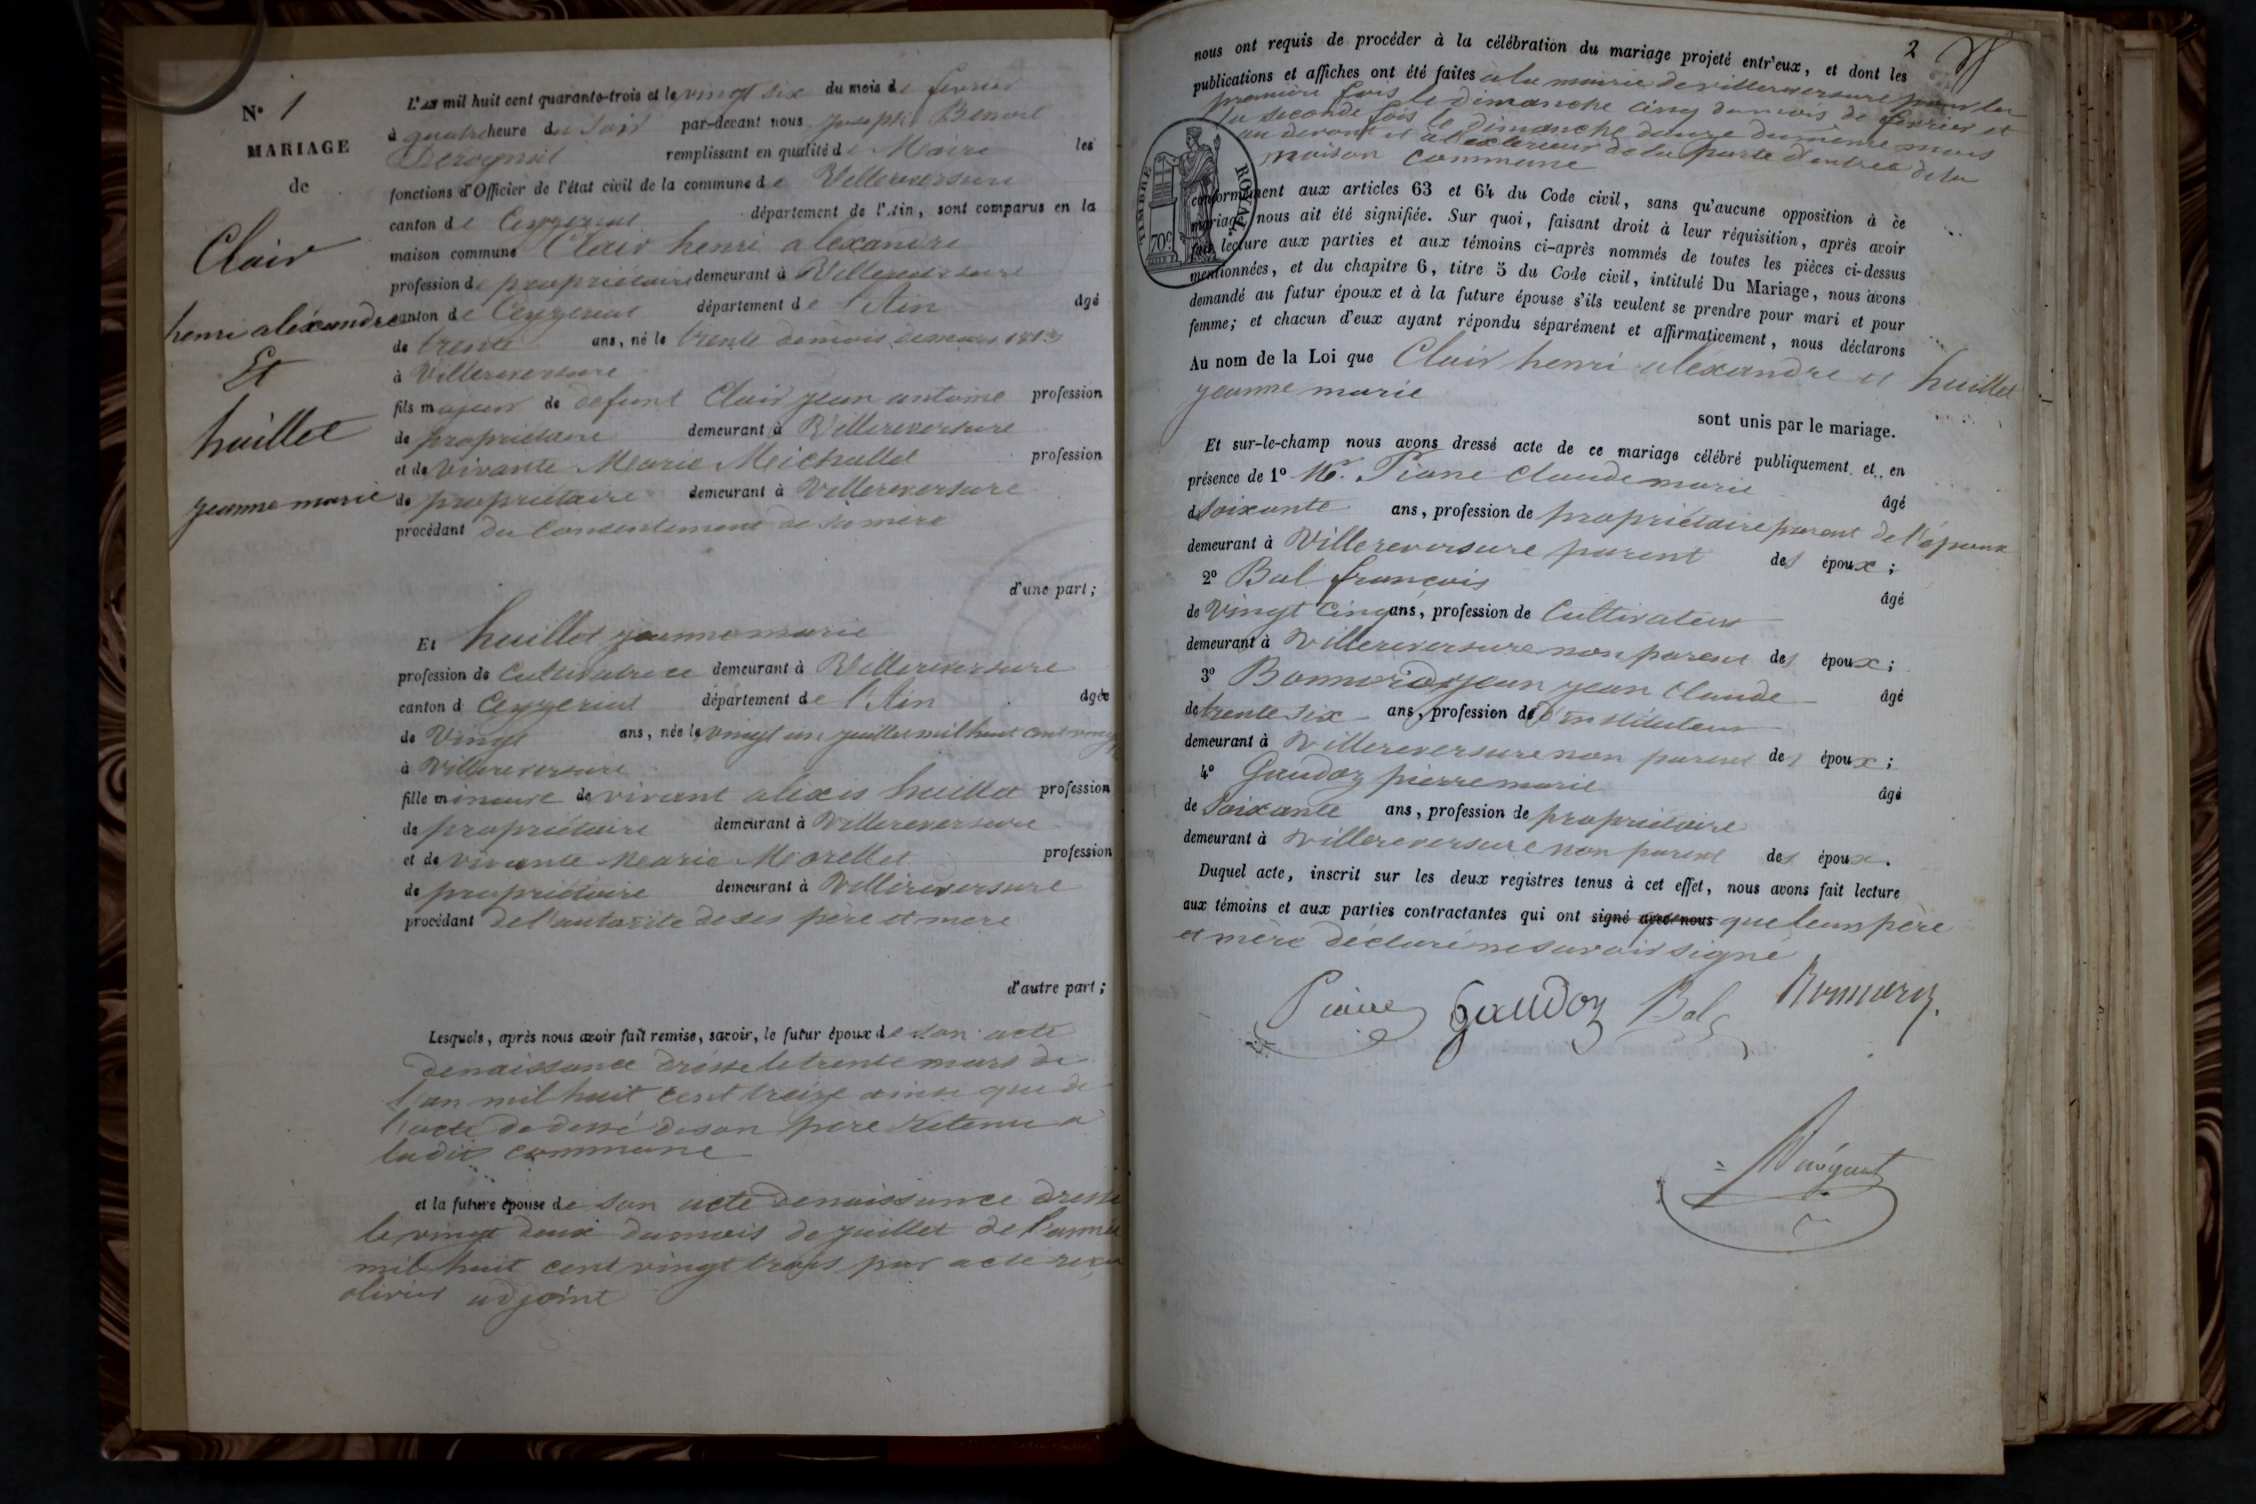 N° 1
MARIAGE
de
Clair
henri aléxandre
Et
huillet
jeanne marie
L'AN mil huit cent quarante-trois et le vingt six du mois de fevrier
à quatre heure du soir par-devant nous joseph Benoit
remplissant en qualité de Maire les
fonctions d'Officier de l'état civil de la commune de Villereversure
canton de Ceyzeriat département de l'Ain, sont comparus en la
maison commune Clair henri alexandre
profession de propriétaire demeurant à Villereversure
canton de Ceyzeriat département de l'Ain âgé
de trente ans, né le trente du mois de mars 1813
à Villereversure
fils majeur de defunt Clair jean antoine profession
de propriétaire demeurant à Villereversure
et de vivante Marie Michallet profession
de propriétaire demeurant à Villereversure
procédant du consentement de sa mère
d'une part;
Et huillet jeanne marie
profession de Cultivatrice demeurant à Villereversure
canton d Ceyzeriat département de l'Ain âgée
de Vingt ans, née le vingt un juillet mil huit cent vingt
à Villereversure
fille mineure de vivant alexis huillet profession
de propriétaire demeurant à Villereversure
et de vivante Marie Morellet profession
de propriétaire demeurant à Villereversure
procédant de l'autorité de ses père et mere
d'autre part;
Lesquels, après nous avoir fait remise, savoir, le futur époux de son acte
de naissance dressé le trente mars de
l'an mil huit cent treize ainsi que de
l'acte de dessé de son père retenu a
ladit commune
et la future épouse de son acte de naissance dressé
le vingt deux du mois de juillet de l'année
mil huit cent vingt trois par acte reçu
olivier adjoint
2
nous ont requis de procéder à la célébration du mariage projeté entr'eux, et dont les
publications et affiches ont été faites a la mairie de villereversure pour la
première fois le dimanche cinq du mois de fevrier et
la seconde fois le dimanche douze du même mois
au devant et a l'exterieur de la porte d'entrée de la
maison commune
TIMBRE ROYAL
70c
conformément aux articles 63 et 64 du Code civil, sans qu'aucune opposition à ce
mariage nous ait été signifiée. Sur quoi, faisant droit à leur réquisition, après avoir
fait lecture aux parties et aux témoins ci-après nommés de toutes les pièces ci-dessus
mentionnées, et du chapitre 6, titre 5 du Code civil, intitulé Du Mariage, nous avons
demandé au futur époux et à la future épouse s'ils veulent se prendre pour mari et pour
femme; et chacun d'eux ayant répondu séparément et affirmativement, nous déclarons
Au nom de la Loi que Clair henri aléxandre et huillet
jeanne marie
sont unis par le mariage.
Et sur-le-champ nous avons dressé acte de ce mariage célébré publiquement et en
présence de 1° Mr. Piane Claude marie âgé
d soixante ans, profession de propriétaire parent de l'époux
demeurant à Villereversure parent des époux;
2° Bal françois âgé
de Vingt Cinq ans, profession de Cultivateur
demeurant à Villereversure non parent des époux;
3° jean Claude âgé
de trente six ans, profession de instituteur
demeurant à Villereversure non parent des époux;
4° Gaudoz pierre marie âgé
de Soixante ans, profession de propriétaire
demeurant à Villereversure non parent des époux.
Duquel acte, inscrit sur les deux registres tenus à cet effet, nous avons fait lecture
aux témoins et aux parties contractantes qui ont signé avec nous que leurs père
et mère déclaré ne savoir signé
Gaudoz Bal